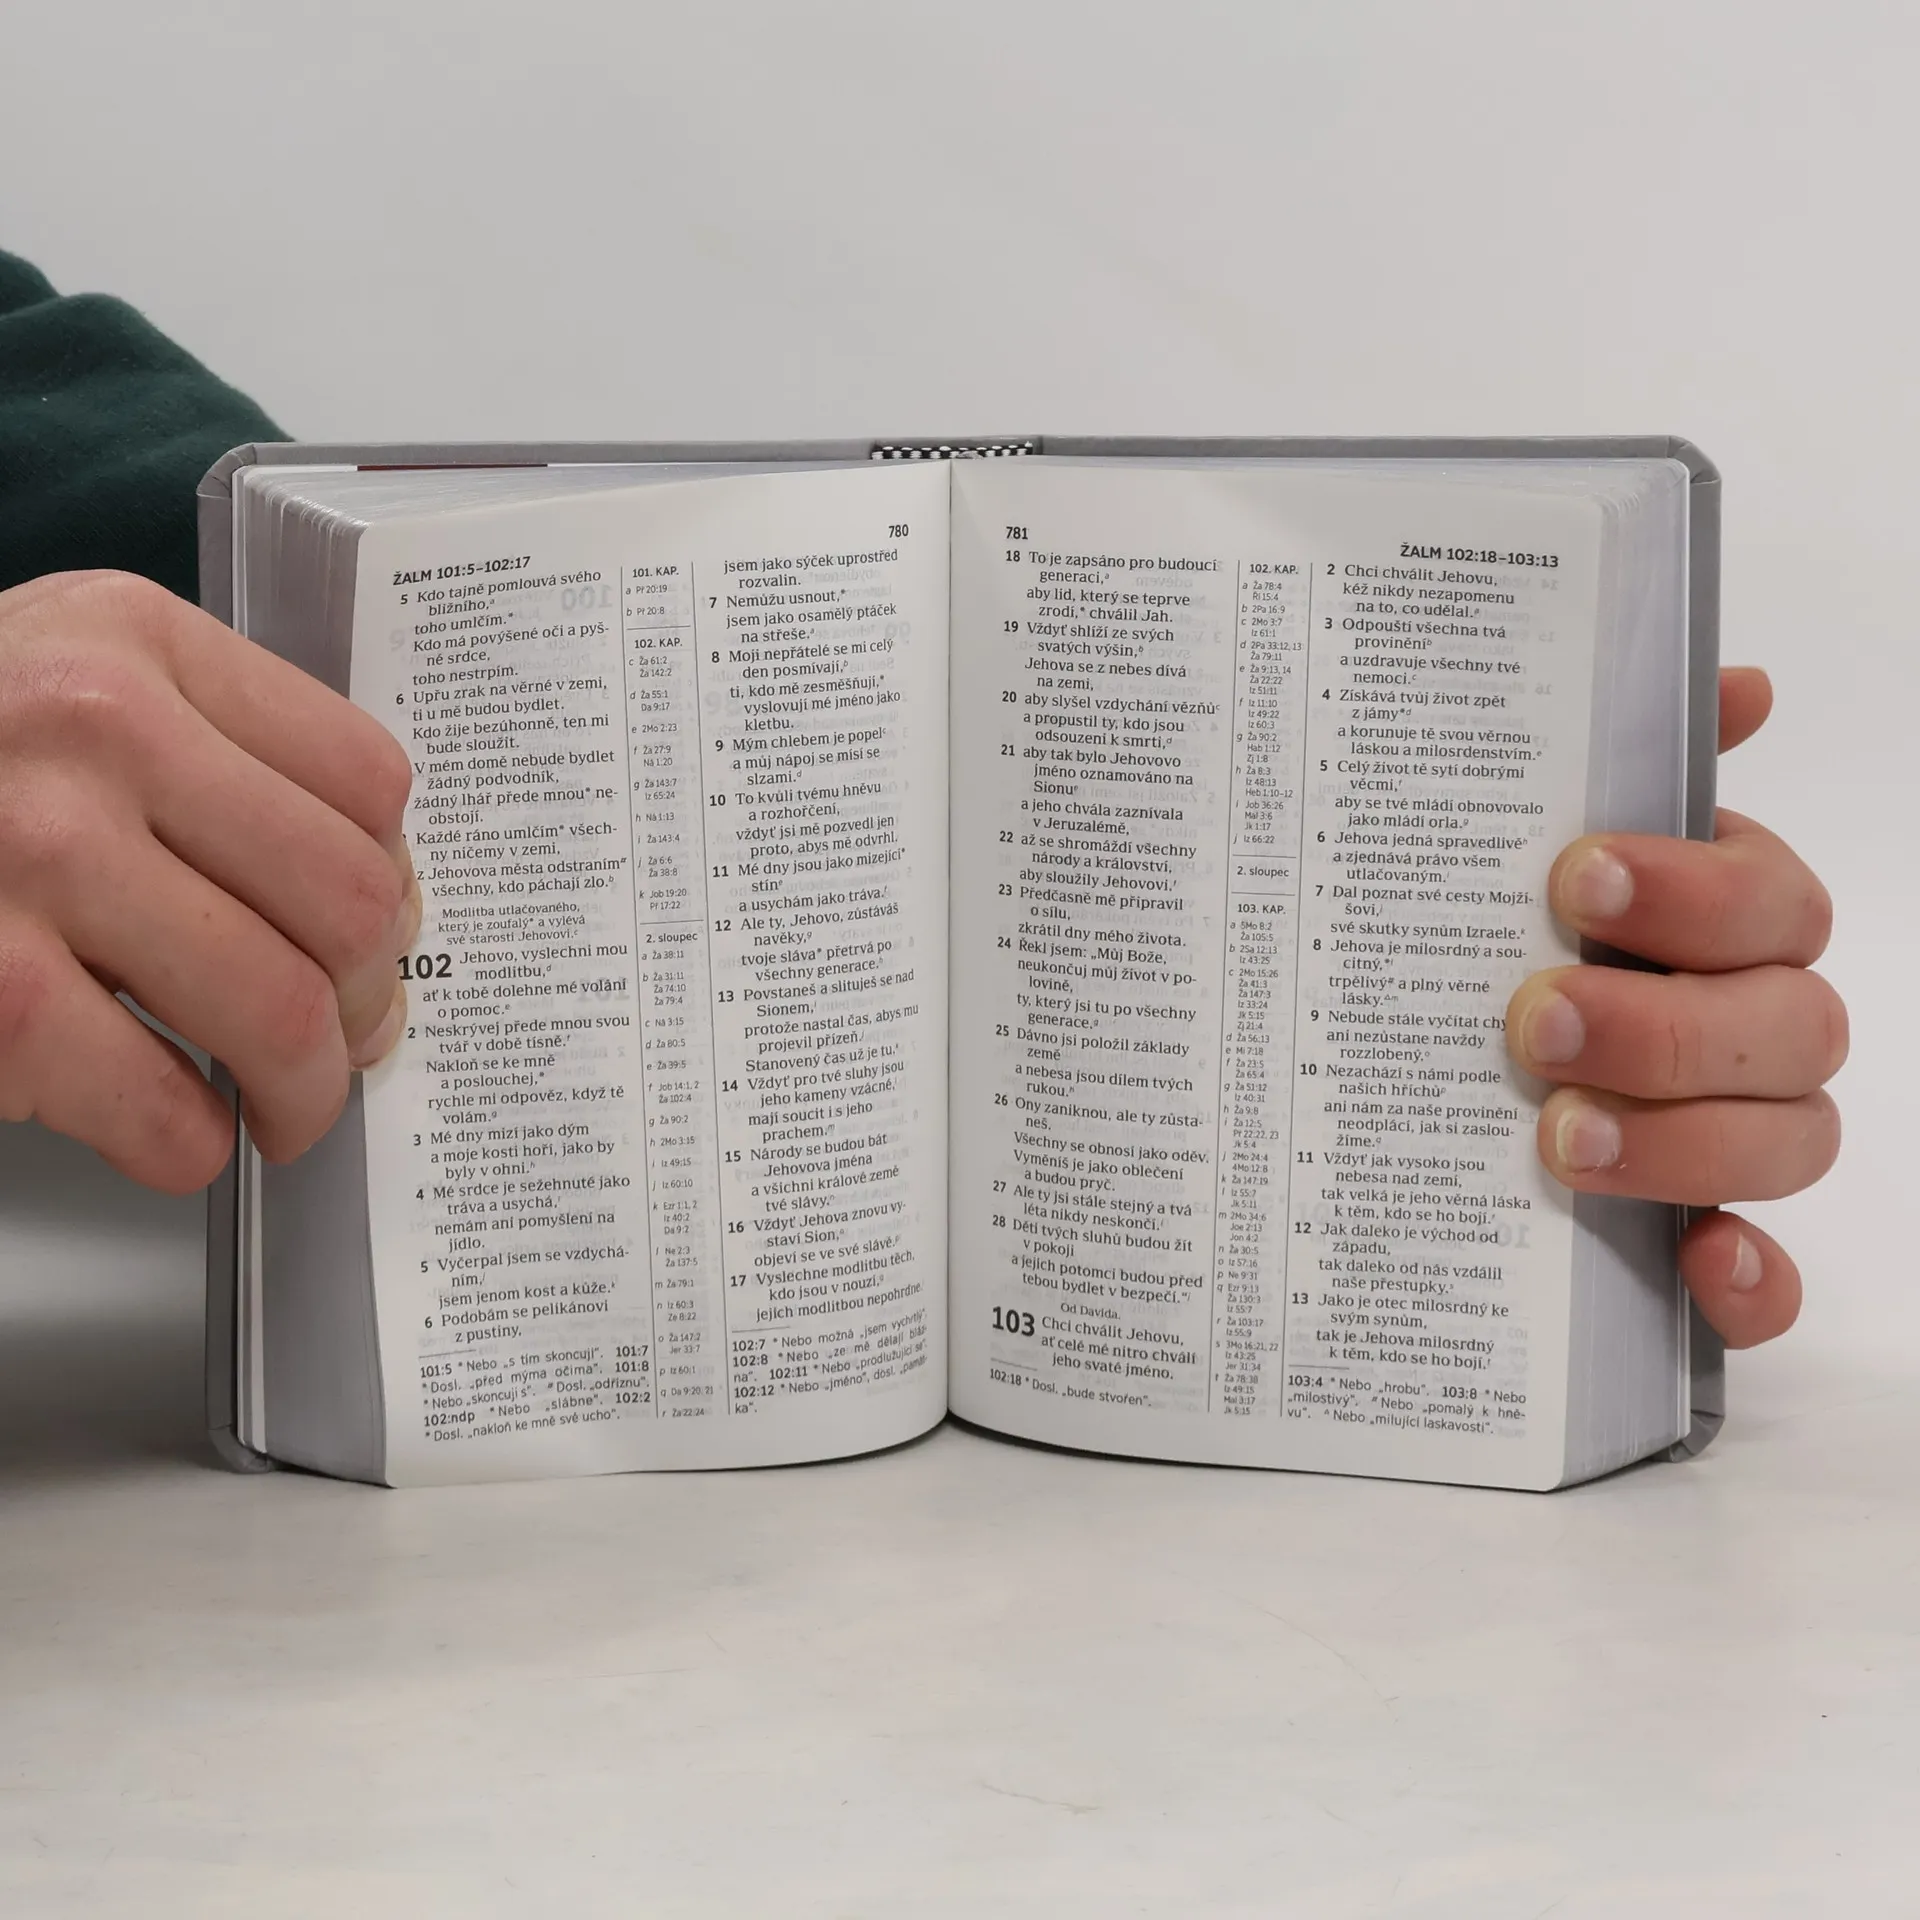 780
ŽALM 101:5–102:17
5 Kdo tajně pomlouvá svého
bližního,ᵃ
toho umlčím.*
Kdo má povýšené oči a pyš-
né srdce,
toho nestrpím.
6 Upřu zrak na věrné v zemi,
ti u mě budou bydlet.
Kdo žije bezúhonně, ten mi
bude sloužit.
V mém domě nebude bydlet
žádný podvodník,
žádný lhář přede mnou* ne-
obstojí.
Každé ráno umlčím* všech-
ny ničemy v zemi,
z Jehovova města odstraním#
všechny, kdo páchají zlo.ᵇ
Modlitba utlačovaného,
který je zoufalý* a vylévá
své starosti Jehovovi.ᶜ
102 Jehovo, vyslechni mou
modlitbu,ᵈ
ať k tobě dolehne mé volání
o pomoc.ᵉ
2 Neskrývej přede mnou svou
tvář v době tísně.ᶠ
Nakloň se ke mně
a poslouchej,*
rychle mi odpověz, když tě
volám.ᵍ
3 Mé dny mizí jako dým
a moje kosti hoří, jako by
byly v ohni.ʰ
4 Mé srdce je sežehnuté jako
tráva a usychá,ⁱ
nemám ani pomyšlení na
jídlo.
5 Vyčerpal jsem se vzdychá-
ním,ʲ
jsem jenom kost a kůže.ᵏ
6 Podobám se pelikánovi
z pustiny,
101:5 * Nebo „s tím skoncuji“. 101:7
* Dosl. „před mýma očima“. 101:8
* Nebo „skoncuji s“. # Dosl. „odříznu“.
102:ndp * Nebo „slábne“. 102:2
* Dosl. „nakloň ke mně své ucho“.
101. KAP.
a Př 20:19
b Př 20:8
102. KAP.
c Ža 61:2
Ža 142:2
d Ža 55:1
Da 9:17
e 2Mo 2:23
f Ža 27:9
Ná 1:20
g Ža 143:7
Iz 65:24
h Ná 1:13
i Ža 143:4
j Ža 6:6
Ža 38:8
k Job 19:20
Př 17:22
2. sloupec
a Ža 38:11
b Ža 31:11
Ža 74:10
Ža 79:4
c Ná 3:15
d Ža 80:5
e Ža 39:5
f Job 14:1, 2
Ža 102:4
g Ža 90:2
h 2Mo 3:15
i Iz 49:15
j Iz 60:10
k Ezr 1:1, 2
Iz 40:2
Da 9:2
l Ne 2:3
Ža 137:5
m Ža 79:1
n Iz 60:3
Ze 8:22
o Ža 147:2
Jer 33:7
p Iz 60:1
q Da 9:20, 21
r Ža 22:24
jsem jako sýček uprostřed
rozvalin.
7 Nemůžu usnout,*
jsem jako osamělý ptáček
na střeše.ᵃ
8 Moji nepřátelé se mi celý
den posmívají,ᵇ
ti, kdo mě zesměšňují,*
vyslovují mé jméno jako
kletbu.
9 Mým chlebem je popelᶜ
a můj nápoj se mísí se
slzami.ᵈ
10 To kvůli tvému hněvu
a rozhořčení,
vždyť jsi mě pozvedl jen
proto, abys mě odvrhl.
11 Mé dny jsou jako mizející*
stínᵉ
a usychám jako tráva.ᶠ
12 Ale ty, Jehovo, zůstáváš
navěky,ᵍ
tvoje sláva* přetrvá po
všechny generace.ʰ
13 Povstaneš a slituješ se nad
Sionem,ⁱ
protože nastal čas, abys mu
projevil přízeň.ʲ
Stanovený čas už je tu.ᵏ
14 Vždyť pro tvé sluhy jsou
jeho kameny vzácné,ˡ
mají soucit i s jeho
prachem.ᵐ
15 Národy se budou bát
Jehovova jména
a všichni králové země
tvé slávy.ⁿ
16 Vždyť Jehova znovu vy-
staví Sion,ᵒ
objeví se ve své slávě.ᵖ
17 Vyslechne modlitbu těch,
kdo jsou v nouzi,q
jejich modlitbou nepohrdne.ʳ
102:7 * Nebo možná „jsem vychrtlý“.
102:8 * Nebo „ze mě dělají bláz-
na“. 102:11 * Nebo „prodlužující se“.
102:12 * Nebo „jméno“, dosl. „památ-
ka“.
781
ŽALM 102:18–103:13
18 To je zapsáno pro budoucí
generaci,ᵃ
aby lid, který se teprve
zrodí,* chválil Jah.
19 Vždyť shlíží ze svých
svatých výšin,ᵇ
Jehova se z nebes dívá
na zemi,
20 aby slyšel vzdychání vězňůᶜ
a propustil ty, kdo jsou
odsouzeni k smrti,ᵈ
21 aby tak bylo Jehovovo
jméno oznamováno na
Sionuᵉ
a jeho chvála zaznívala
v Jeruzalémě,
22 až se shromáždí všechny
národy a království,
aby sloužily Jehovovi.ᶠ
23 Předčasně mě připravil
o sílu,
zkrátil dny mého života.
24 Řekl jsem: „Můj Bože,
neukončuj můj život v po-
lovině,
ty, který jsi tu po všechny
generace.ᵍ
25 Dávno jsi položil základy
země
a nebesa jsou dílem tvých
rukou.ʰ
26 Ony zaniknou, ale ty zůsta-
neš.
Všechny se obnosí jako oděv.
Vyměníš je jako oblečení
a budou pryč.
27 Ale ty jsi stále stejný a tvá
léta nikdy neskončí.ⁱ
28 Děti tvých sluhů budou žít
v pokoji
a jejich potomci budou před
tebou bydlet v bezpečí.“ʲ
Od Davida.
103 Chci chválit Jehovu,
ať celé mé nitro chválí
jeho svaté jméno.
102:18 * Dosl. „bude stvořen“.
102. KAP.
a Ža 78:4
Ří 15:4
b 2Pa 16:9
c 2Mo 3:7
Iz 61:1
d 2Pa 33:12, 13
Ža 79:11
e Ža 9:13, 14
Ža 22:22
Iz 51:11
f Iz 11:10
Iz 49:22
Iz 60:3
g Ža 90:2
Hab 1:12
Zj 1:8
h Ža 8:3
Iz 48:13
Heb 1:10–12
i Job 36:26
Mal 3:6
Jk 1:17
j Iz 66:22
2. sloupec
103. KAP.
a 5Mo 8:2
Ža 105:5
b 2Sa 12:13
Iz 43:25
c 2Mo 15:26
Ža 41:3
Ža 147:3
Iz 33:24
Jk 5:15
Zj 21:4
d Ža 56:13
e Mi 7:18
f Ža 23:5
Ža 65:4
g Ža 51:12
Iz 40:31
h Ža 9:8
i Ža 12:5
Př 22:22, 23
Jk 5:4
j 2Mo 24:4
4Mo 12:8
k Ža 147:19
l Iz 55:7
Jk 5:11
m 2Mo 34:6
Joe 2:13
Jon 4:2
n Ža 30:5
o Iz 57:16
p Ne 9:31
q Ezr 9:13
Ža 130:3
Iz 55:7
r Ža 103:17
Iz 55:9
s 3Mo 16:21, 22
Iz 43:25
Jer 31:34
t Ža 78:38
Iz 49:15
Mal 3:17
Jk 5:15
2 Chci chválit Jehovu,
kéž nikdy nezapomenu
na to, co udělal.ᵃ
3 Odpouští všechna tvá
proviněníᵇ
a uzdravuje všechny tvé
nemoci.ᶜ
4 Získává tvůj život zpět
z jámy*ᵈ
a korunuje tě svou věrnou
láskou a milosrdenstvím.ᵉ
5 Celý život tě sytí dobrými
věcmi,ᶠ
aby se tvé mládí obnovovalo
jako mládí orla.ᵍ
6 Jehova jedná spravedlivěʰ
a zjednává právo všem
utlačovaným.ⁱ
7 Dal poznat své cesty Mojží-
šovi,ʲ
své skutky synům Izraele.ᵏ
8 Jehova je milosrdný a sou-
citný,*ˡ
trpělivý# a plný věrné
lásky.△ᵐ
9 Nebude stále vyčítat chy
ani nezůstane navždy
rozzlobený.ᵒ
10 Nezachází s námi podle
našich hříchůᵖ
ani nám za naše provinění
neodplácí, jak si zaslou-
žíme.q
11 Vždyť jak vysoko jsou
nebesa nad zemí,
tak velká je jeho věrná láska
k těm, kdo se ho bojí.ʳ
12 Jak daleko je východ od
západu,
tak daleko od nás vzdálil
naše přestupky.ˢ
13 Jako je otec milosrdný ke
svým synům,
tak je Jehova milosrdný
k těm, kdo se ho bojí,ᵗ
103:4 * Nebo „hrobu“. 103:8 * Nebo
„milostivý“. # Nebo „pomalý k hně-
vu“. △ Nebo „milující laskavosti“.